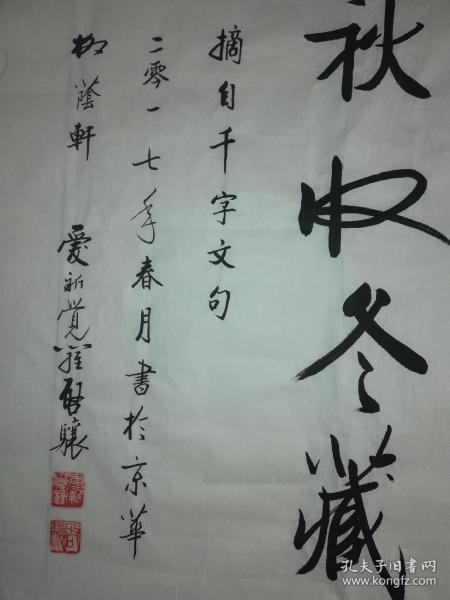 秋收冬藏
摘自千字文句
二零一七年春月書於京華
柳蔭軒 愛新覺羅啓驤
孔夫子旧书网
www.kongfz.com